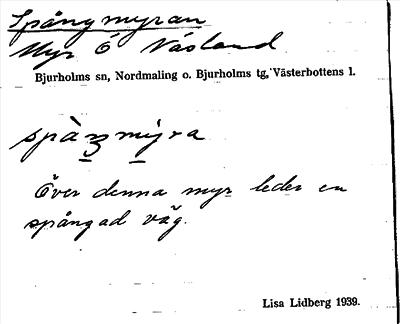 Spångmyran
Myr Ö Västand
Bjurholms sn, Nordmaling o. Bjurholms tg, Västerbottens l.
spàŋmýra
Över denna myr leder en
spångad väg.
Lisa Lidberg 1939.